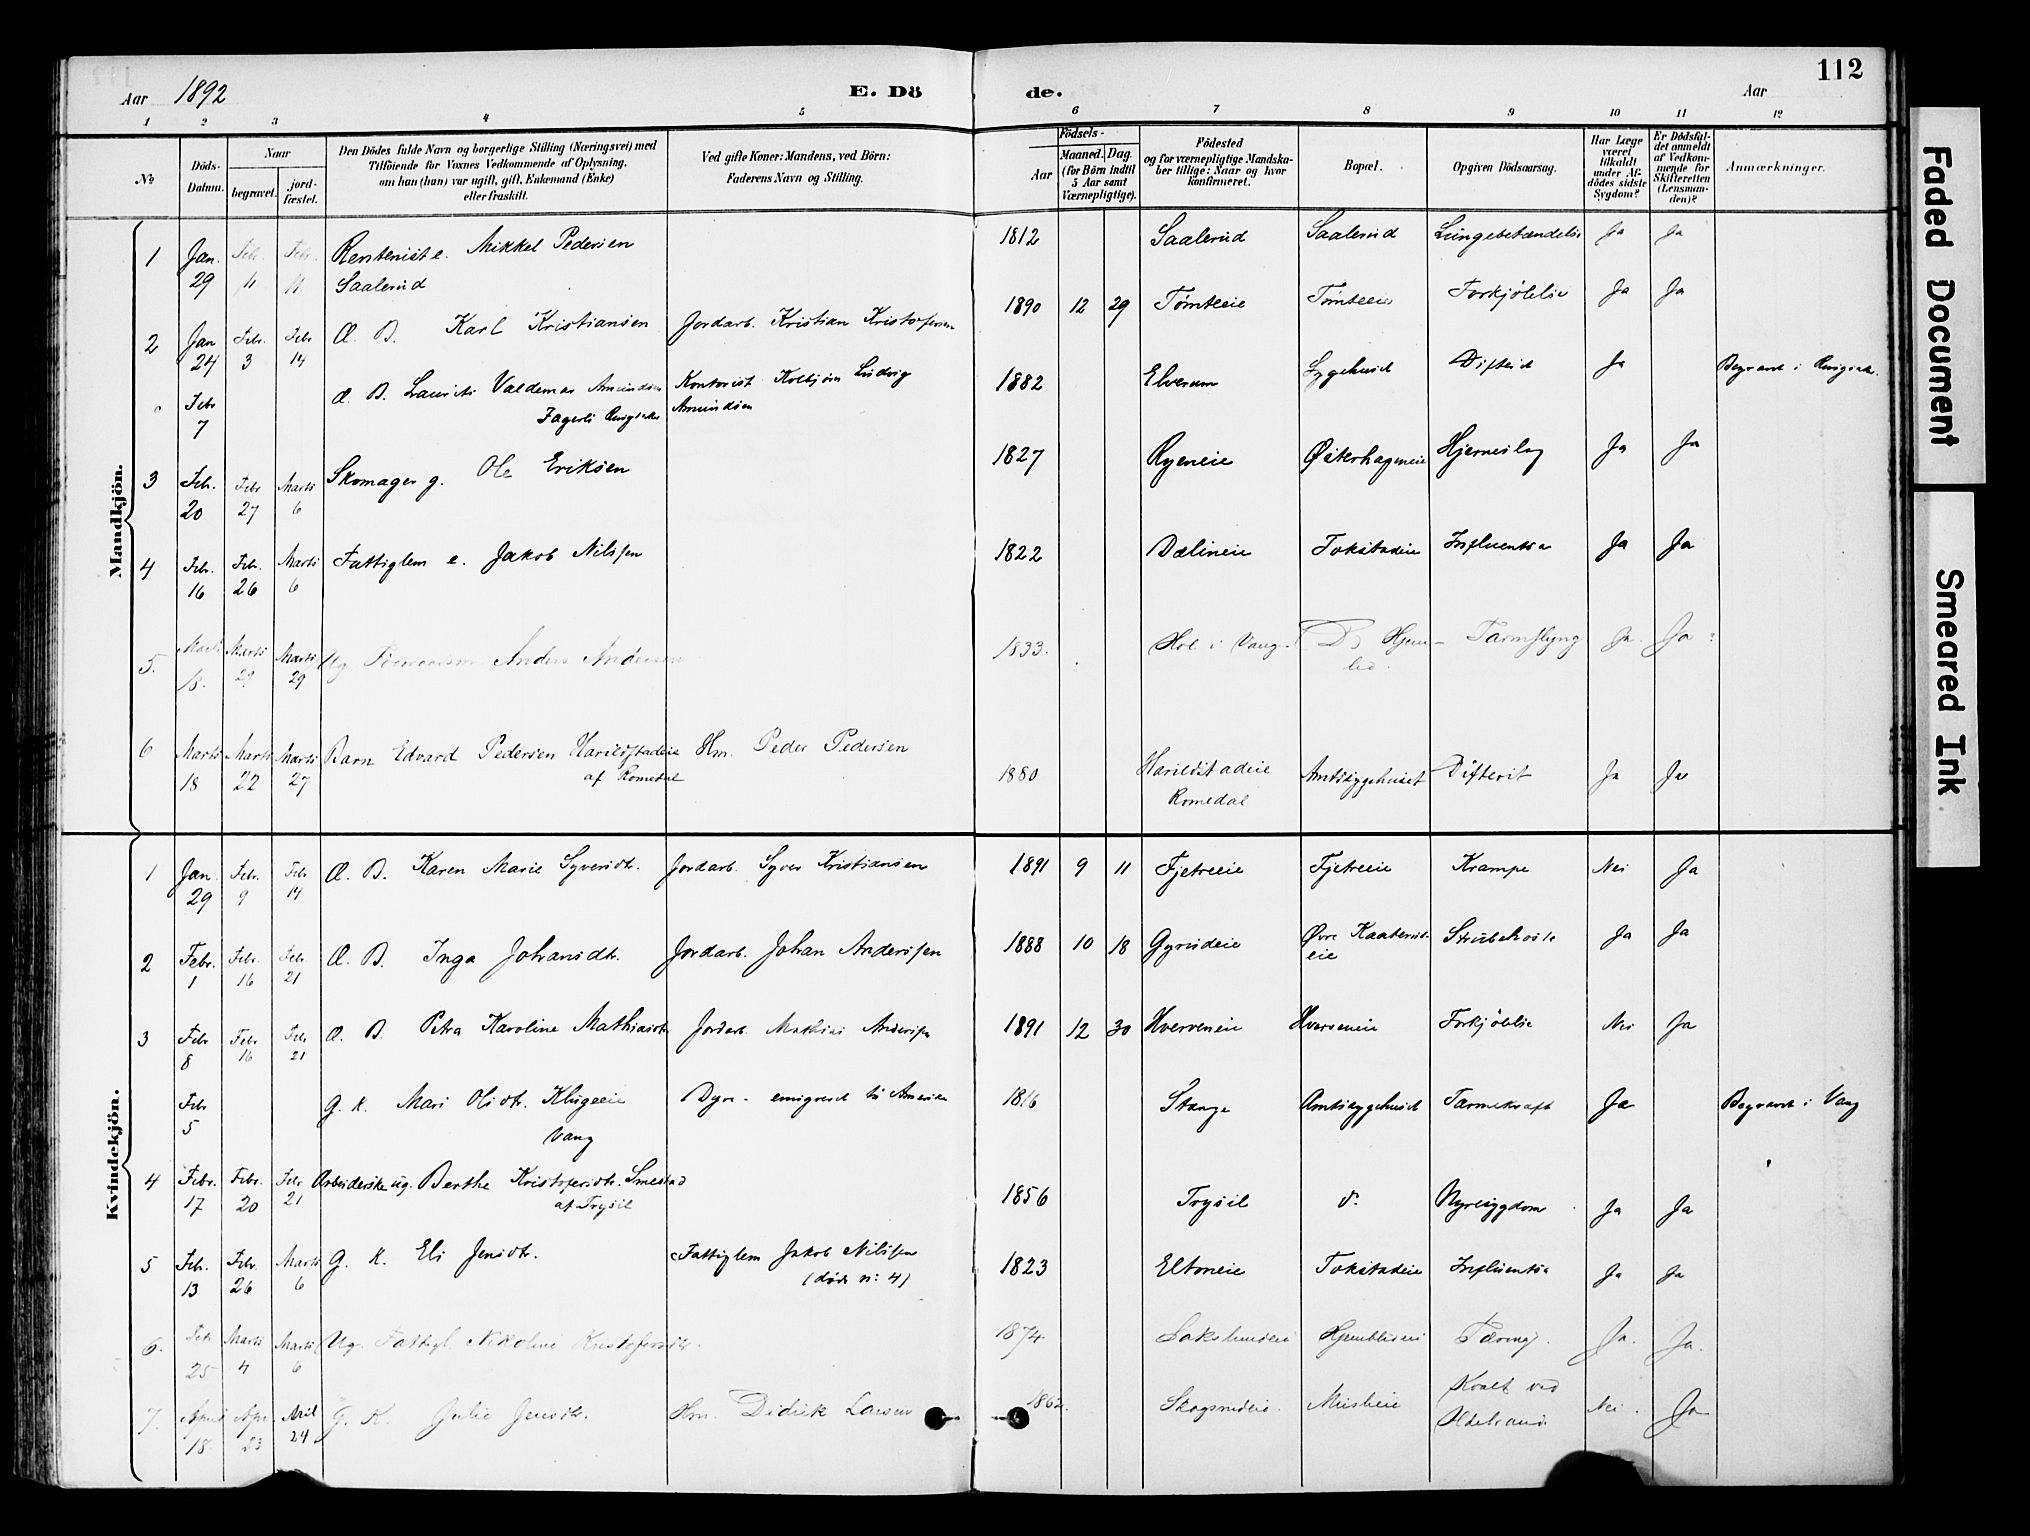 112
Aar 1892
E. Dö
de.
Aar
1 2 3 4 5 6 7 8 9 10 11 12
No
Döds-
Datum.
Naar
begravet.
jord-
fæstet.
Den Dödes fulde Navn og borgerlige Stilling (Næringsvei) med
Tilföiende for Voxnes Vedkommende af Oplysning,
om han (hun) var ugift, gift, Enkemand (Enke)
eller fraskilt.
Ved gifte Koner: Mandens, ved Börn:
Faderens Navn og Stilling.
Födsels-
Aar
Maaned.
Dag.
(for Börn indtil
5 Aar samt
Værnepligtige).
Födested
og for værnepligtige Mandska-
ber tillige: Naar og hvor
konfirmeret.
Bopæl.
Opgiven Dödsaarsag.
Har Læge
været
tilkaldt
under Af-
dödes sidste
Sygdom?
Er Dödsfal-
det anmeldt
af Vedkom-
mende for
Skifteretten
(Lensman-
den)?
Anmærkninger.
Mandkjön.
1 Jan. 29 Febr. 11 Febr. 11 Rentenist e. Mikkel Pedersen 1812 Saalerud Saalerud Lungebetændelse Ja Ja
Saalerud
2 Jan 24 Febr. 3 Febr 14 Æ. B. Karl Kristiansen Jordarb. Kristian Kristofersen 1890 12 29 Tømteeie Tømteeie Forkjølelse Ja Ja
Febr 7 Æ. B. Laurits Valdemar Amundsen Kontorist Kolbjørn Ludvig 1882 Elverum Sygehuset Difterit Ja Begravet i Ringsak.
Fagerli Ringsaker Amundsen
3 Feb. 20 Febr 27 Marts 6 Skomager g. Ole Eriksen 1827 Ryeneie Østerhageneie Hjerneslag Ja Ja
4 Febr. 16 Febr. 26 Marts 6 Fattiglem e. Jakob Nilssen 1822 Dælineie Tokstadeie Influentsa Ja Ja
5. Marts 18. Marts 29 Marts 29 Ug Anders Andersen 1833. Hol i Vang. Hjem- Tarmslyng Ja. Ja
lid.
6 Marts 18 Marts 22 Marts 27 Barn Edvard Pedersen Harildstadeie Hm. Peder Pedersen 1880 Harildstadeie Amtssygehuset Difterit Ja Ja
af Romedal Romedal
Kvindekjön.
1 Jan. 29 Febr. 9 Febr 14 Æ. B. Karen Marie Syversdtr. Jordarb. Syver Kristiansen 1891 9 11 Fjetreeie Fjetreeie Krampe Nei Ja
2 Febr. 1 Febr. 16 Febr 21 Æ. B. Inga Johansdtr. Jordarb. Johan Anderssen 1888 10 18 Gyrudeie Øvre Kaaterud- Strubehoste Ja Ja
eie
3 Febr 8 Febr 16 Febr. 21 Æ. B. Petra Karoline Mathiasdtr Jordarb. Mathias Anderssen 1891 12 30 Hverveneie Hverveneie Forkjølelse Nei Ja
Febr 5 G. K. Mari Olsdtr. Klugeeie Dyre - emigreret til Amerika 1816 Stange Amtssygehuset Tarmekraft Ja Begravet i Vang
Vang
4 Febr. 17 Febr. 20 Febr 21 Arbeiderske ug. Berthe Kristofersdtr. Smestad 1856 Trysil do Nyresygdom Ja Ja
af Trysil
5 Feb. 13 Febr. 26 Marts 6 G. K. Eli Jensdtr. Fattiglem Jakob Nilssen 1823 Eltoneie Tokstadeie Influentsa Ja Ja
(døde n: 4)
6. Febr 25 Marts 4 Marts 6 Ug. Fattigl. Nikoline Kristofersdtr. 1874 Hjemblideie Tæring. Ja. Ja.
7. April 18. Apr. 23 Aril 24 G. K. Julie Jensdtr. Hm. Didrik Larsen 1862. Skogsrudeie. Misleeie Kvalt ved Nei. Ja
Ildebrand.
Faded Document
Smeared Ink